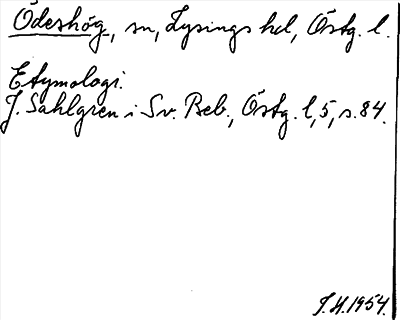 Ödeshög, sn, Lysings hd, Östg. l.
Etymologi.
J. Sahlgren i Sv. Beb., Östg. l, 5, s. 84.
J. H. 1954.